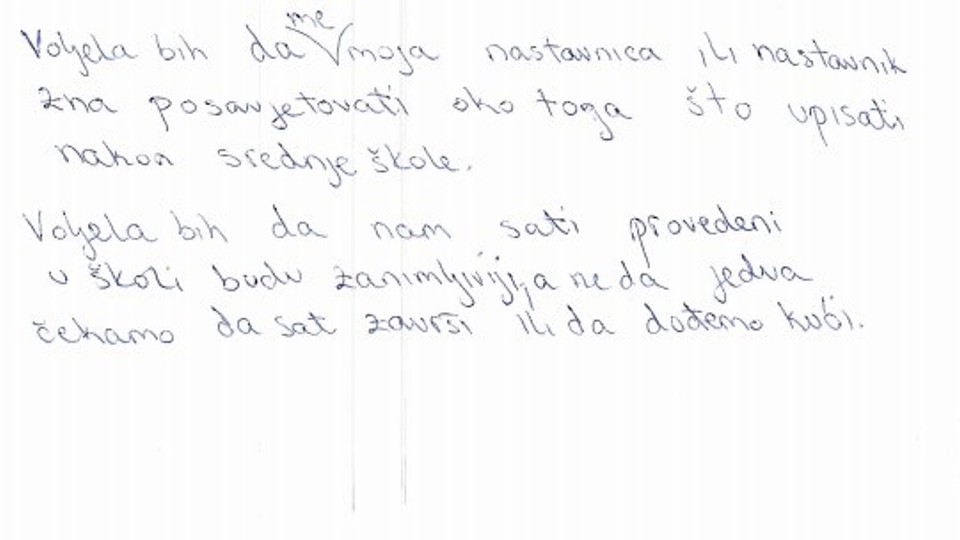 Voljela bih da me moja nastavnica ili nastavnik
zna posavjetovati oko toga što upisati
nakon srednje škole.
Voljela bih da nam sati provedeni
u školi budu zanimljiviji, a ne da jedva
čekamo da sat završi ili da dođemo kući.